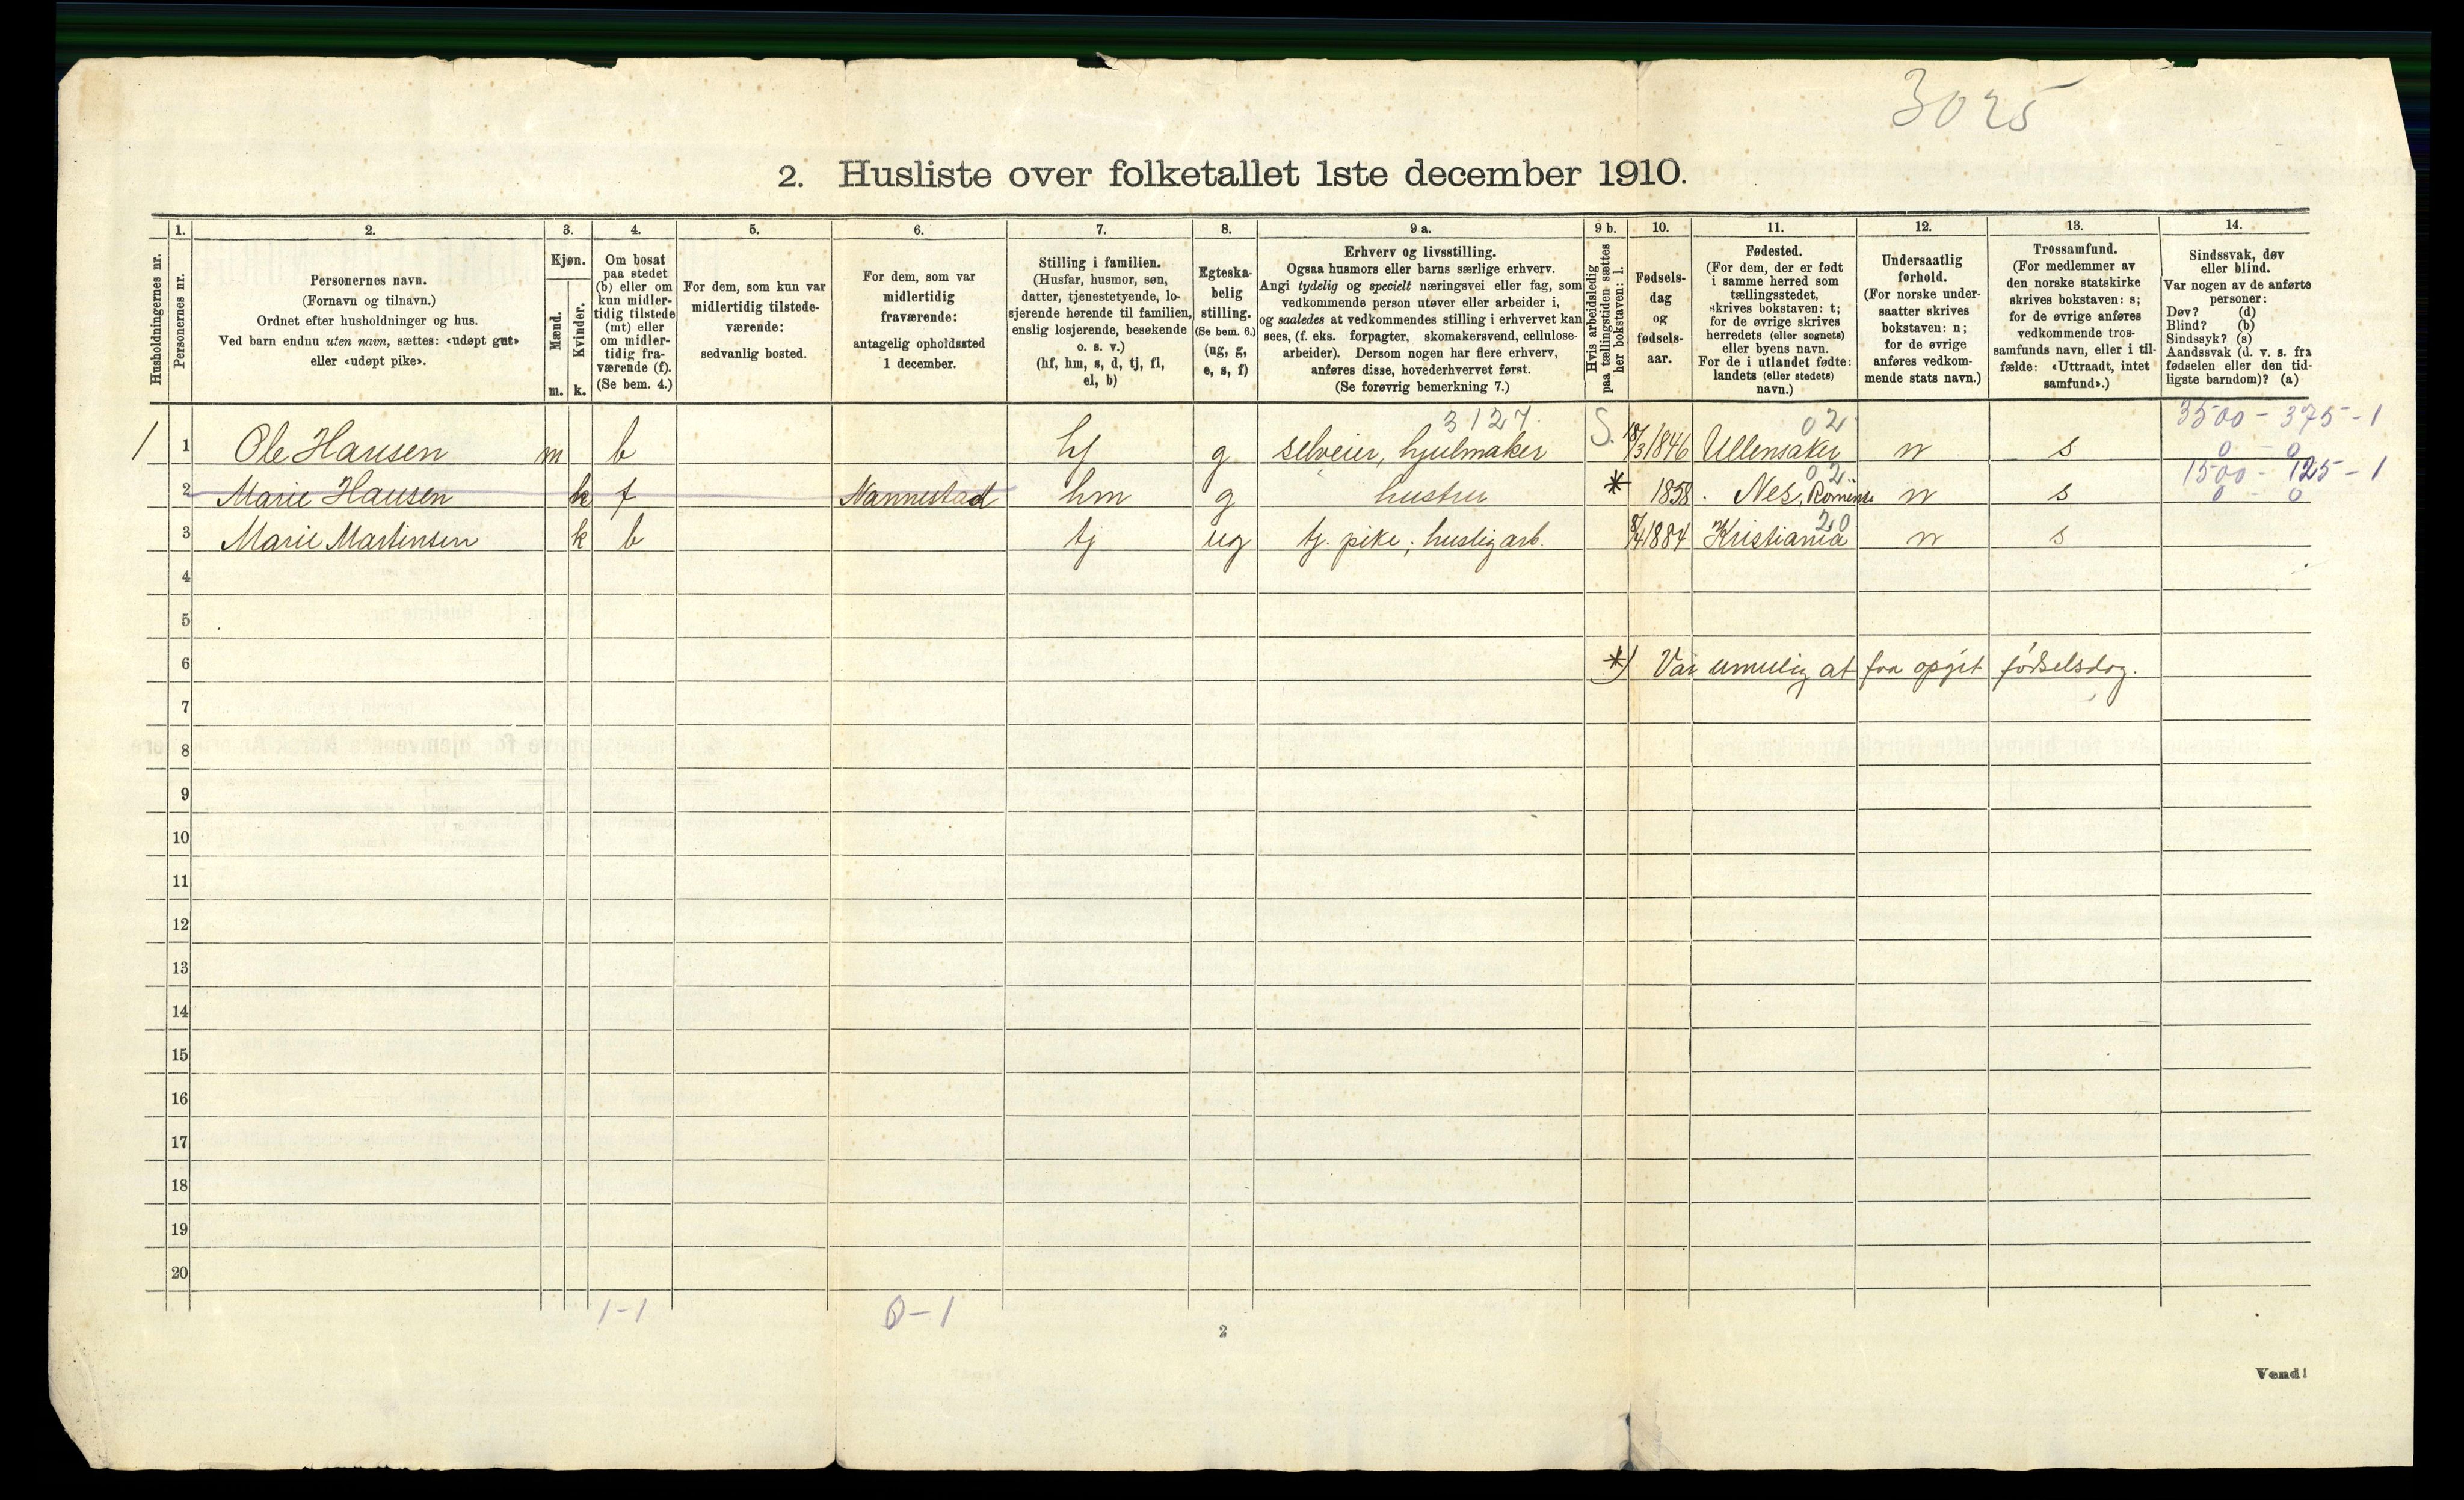 3025
2. Husliste over folketallet 1ste december 1910.
Husholdningernes nr.
1.
Personernes nr.
2.
Personernes navn.
(Fornavn og tilnavn.)
Ordnet efter husholdninger og hus.
Ved barn endnu uten navn, sættes: «udøpt gut»
eller «udøpt pike».
3.
Kjøn.
Mænd.
Kvinder.
m. k.
4.
Om bosat
paa stedet
(b) eller om
kun midler-
tidig tilstede
(mt) eller
om midler-
tidig fra-
værende (f).
(Se bem. 4.)
5.
For dem, som kun var
midlertidig tilstede-
værende:
sedvanlig bosted.
6.
For dem, som var
midlertidig
fraværende:
antagelig opholdssted
1 december.
7.
Stilling i familien.
(Husfar, husmor, søn,
datter, tjenestetyende, lo-
sjerende hørende til familien,
enslig losjerende, besøkende
o. s. v.)
(hf, hm, s, d, tj, fl,
el, b)
8.
Egteska-
belig
stilling.
(Se bem. 6.)
(ug, g,
e, s, f)
9 a.
Erhverv og livsstilling.
Ogsaa husmors eller barns særlige erhverv.
Angi tydelig og specielt næringsvei eller fag, som
vedkommende person utøver eller arbeider i,
og saaledes at vedkommendes stilling i erhvervet kan
sees, (f. eks. forpagter, skomakersvend, cellulose-
arbeider). Dersom nogen har flere erhverv,
anføres disse, hovederhvervet først.
(Se forøvrig bemerkning 7.)
9 b.
Hvis arbeidsledig
paa tællingstiden sættes
her bokstaven: l.
10.
Fødsels-
dag
og
fødsels-
aar.
11.
Fødested.
(For dem, der er født
i samme herred som
tællingsstedet,
skrives bokstaven: t;
for de øvrige skrives
herredets (eller sognets)
eller byens navn.
For de i utlandet fødte:
landets (eller stedets)
navn.)
12.
Undersaatlig
forhold.
(For norske under-
saatter skrives
bokstaven: n;
for de øvrige
anføres vedkom-
mende stats navn.)
13.
Trossamfund.
(For medlemmer av
den norske statskirke
skrives bokstaven: s;
for de øvrige anføres
vedkommende tros-
samfunds navn, eller i til-
fælde: «Uttraadt, intet
samfund».)
14.
Sindssvak, døv
eller blind.
Var nogen av de anførte
personer:
Døv? (d)
Blind? (b)
Sindssyk? (s)
Aandssvak (d. v. s. fra
fødselen eller den tid-
ligste barndom)? (a)
3127. 02 3500 - 375 - 1
1 1 Ole Hansen m b hf g selveier, hjulmaker S. 18/3 1846 Ullensaker n s 0 - 0
02 1500 - 125 - 1
2 Marie Hansen k f Nannestad hm g hustru * 1858. Nes, Romerike n s 0 - 0
20
3 Marie Martinsen k b tj ug tj. pike, husligarb. 8/4 1884 Kristiania n s
4
5
6 *) Var umulig at faa opgit fødselsdag.
7
8
9
10
11
12
13
14
15
16
17
18
19
20
1-1 0-1
2
Vend!